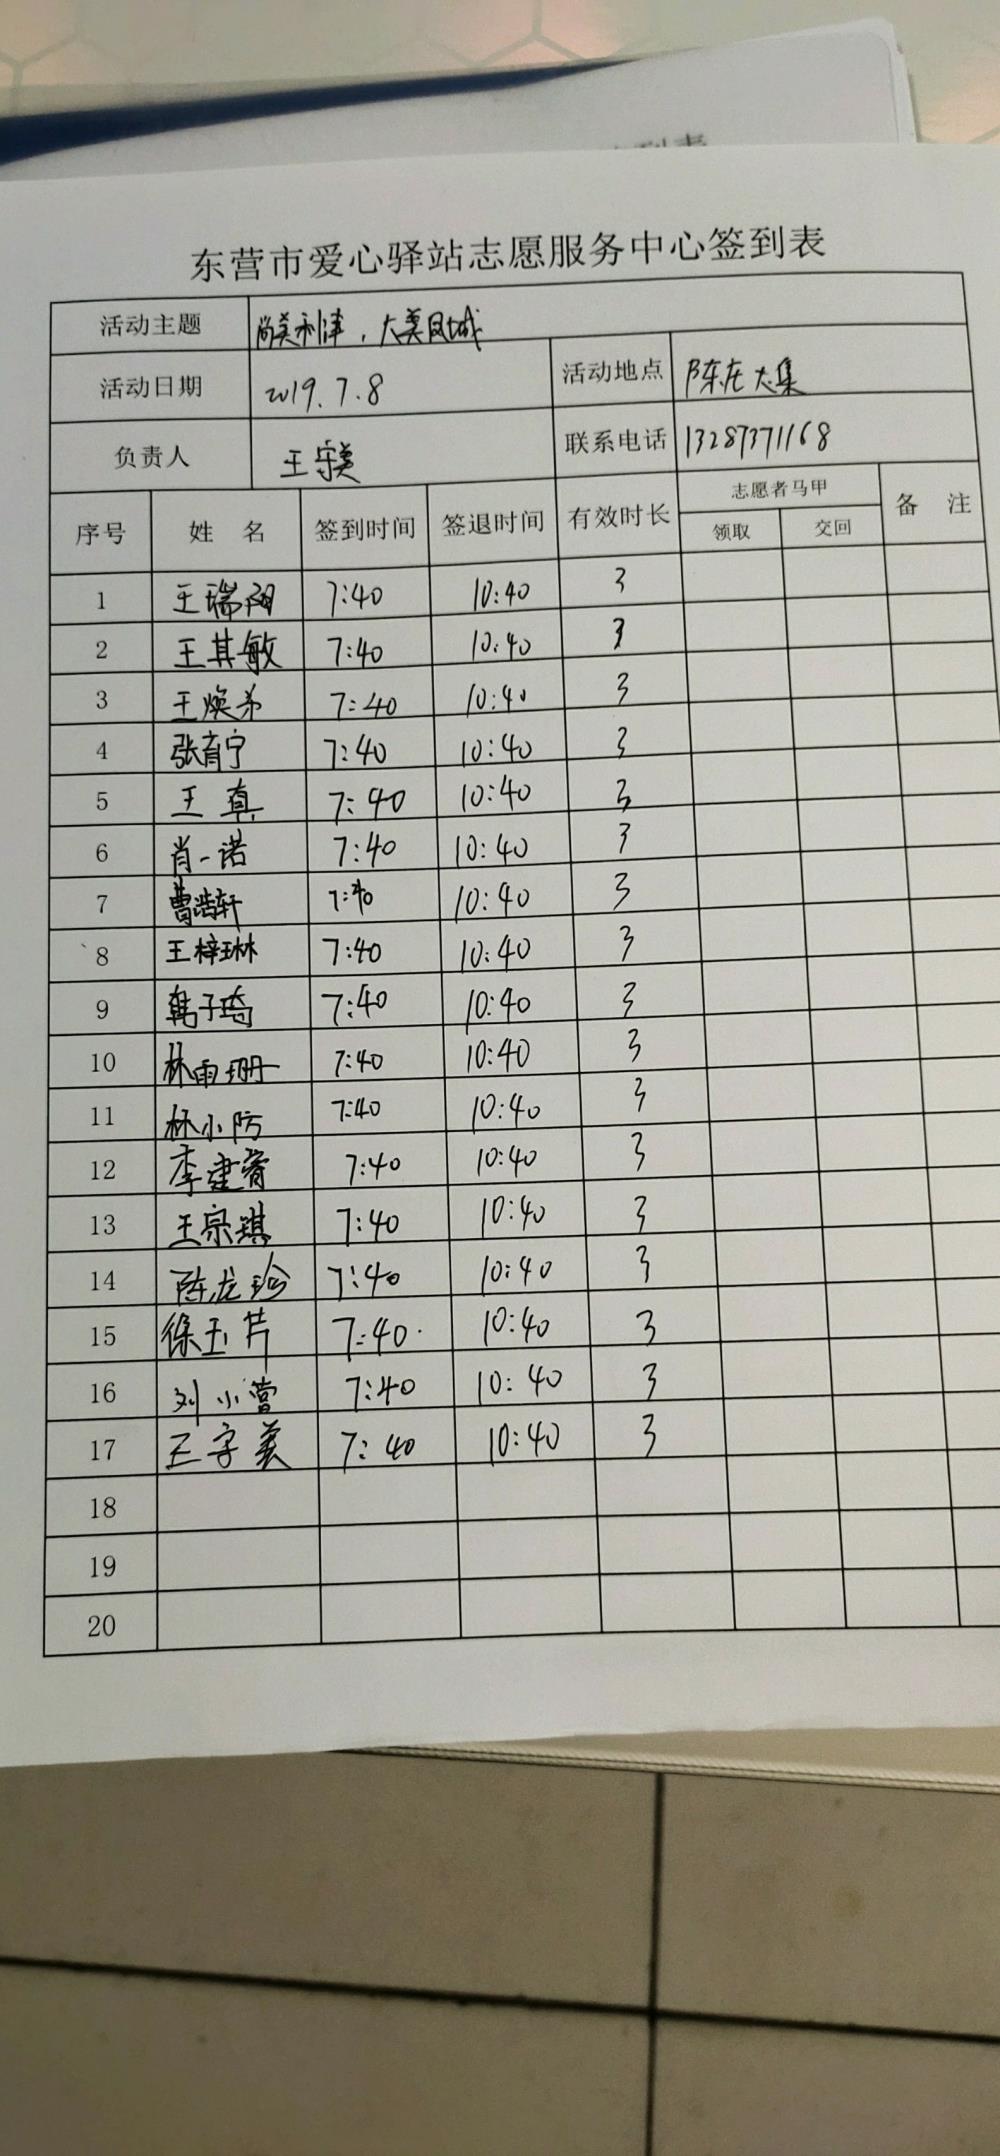 东营市爱心驿站志愿服务中心签到表
活动主题 尚美利津，大美凤城
活动日期 2019.7.8 活动地点 陈庄大集
负责人 王守美 联系电话 13287371168
序号 姓 名 签到时间 签退时间 有效时长 志愿者马甲 领取 交回 备 注
1 王瑞阳 7:40 10:40 3
2 王其敏 7:40 10:40 3
3 王焕弟 7:40 10:40 3
4 张育宁 7:40 10:40 3
5 王真 7:40 10:40 3
6 肖一诺 7:40 10:40 3
7 曹浩轩 7:40 10:40 3
8 王梓琳 7:40 10:40 3
9 韩子琦 7:40 10:40 3
10 林雨珊 7:40 10:40 3
11 林小防 7:40 10:40 3
12 李建睿 7:40 10:40 3
13 王宗琪 7:40 10:40 3
14 陈龙珍 7:40 10:40 3
15 徐玉芹 7:40 10:40 3
16 刘小营 7:40 10:40 3
17 王守美 7:40 10:40 3
18
19
20